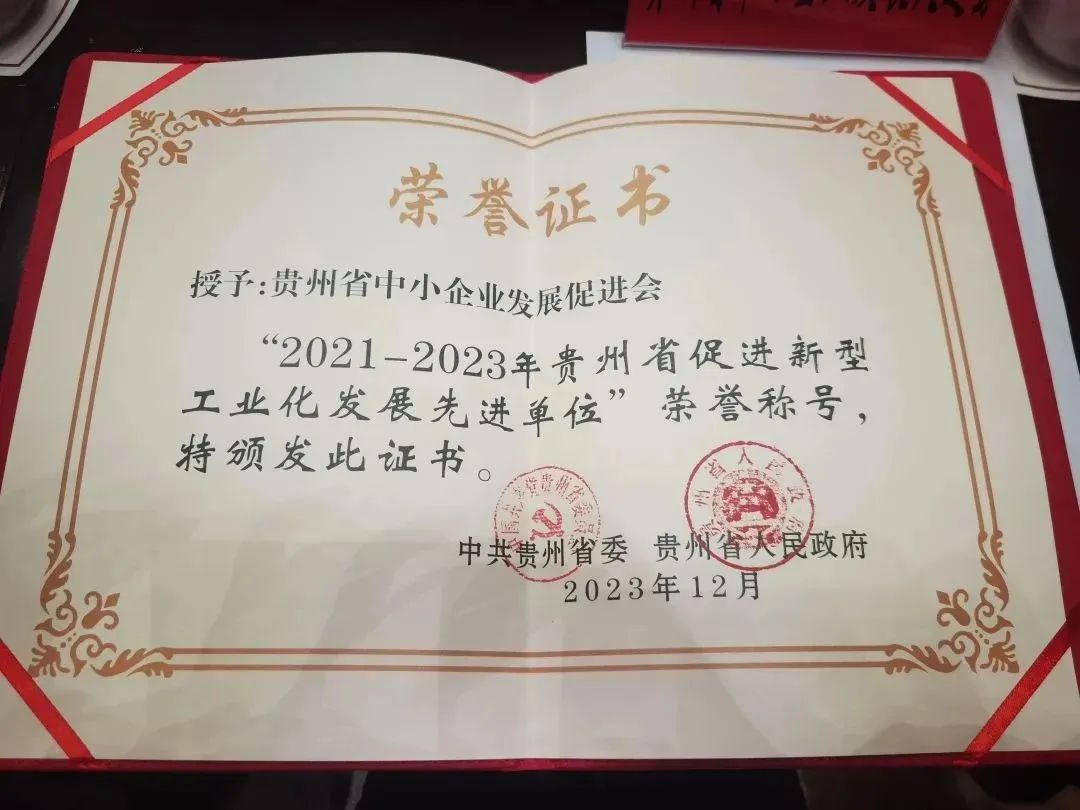 荣誉证书
授予:贵州省中小企业发展促进会
“2021-2023年贵州省促进新型
工业化发展先进单位”荣誉称号,
特颁发此证书。
中国共产党贵州省委员会
贵州省人民政府
中共贵州省委 贵州省人民政府
2023年12月